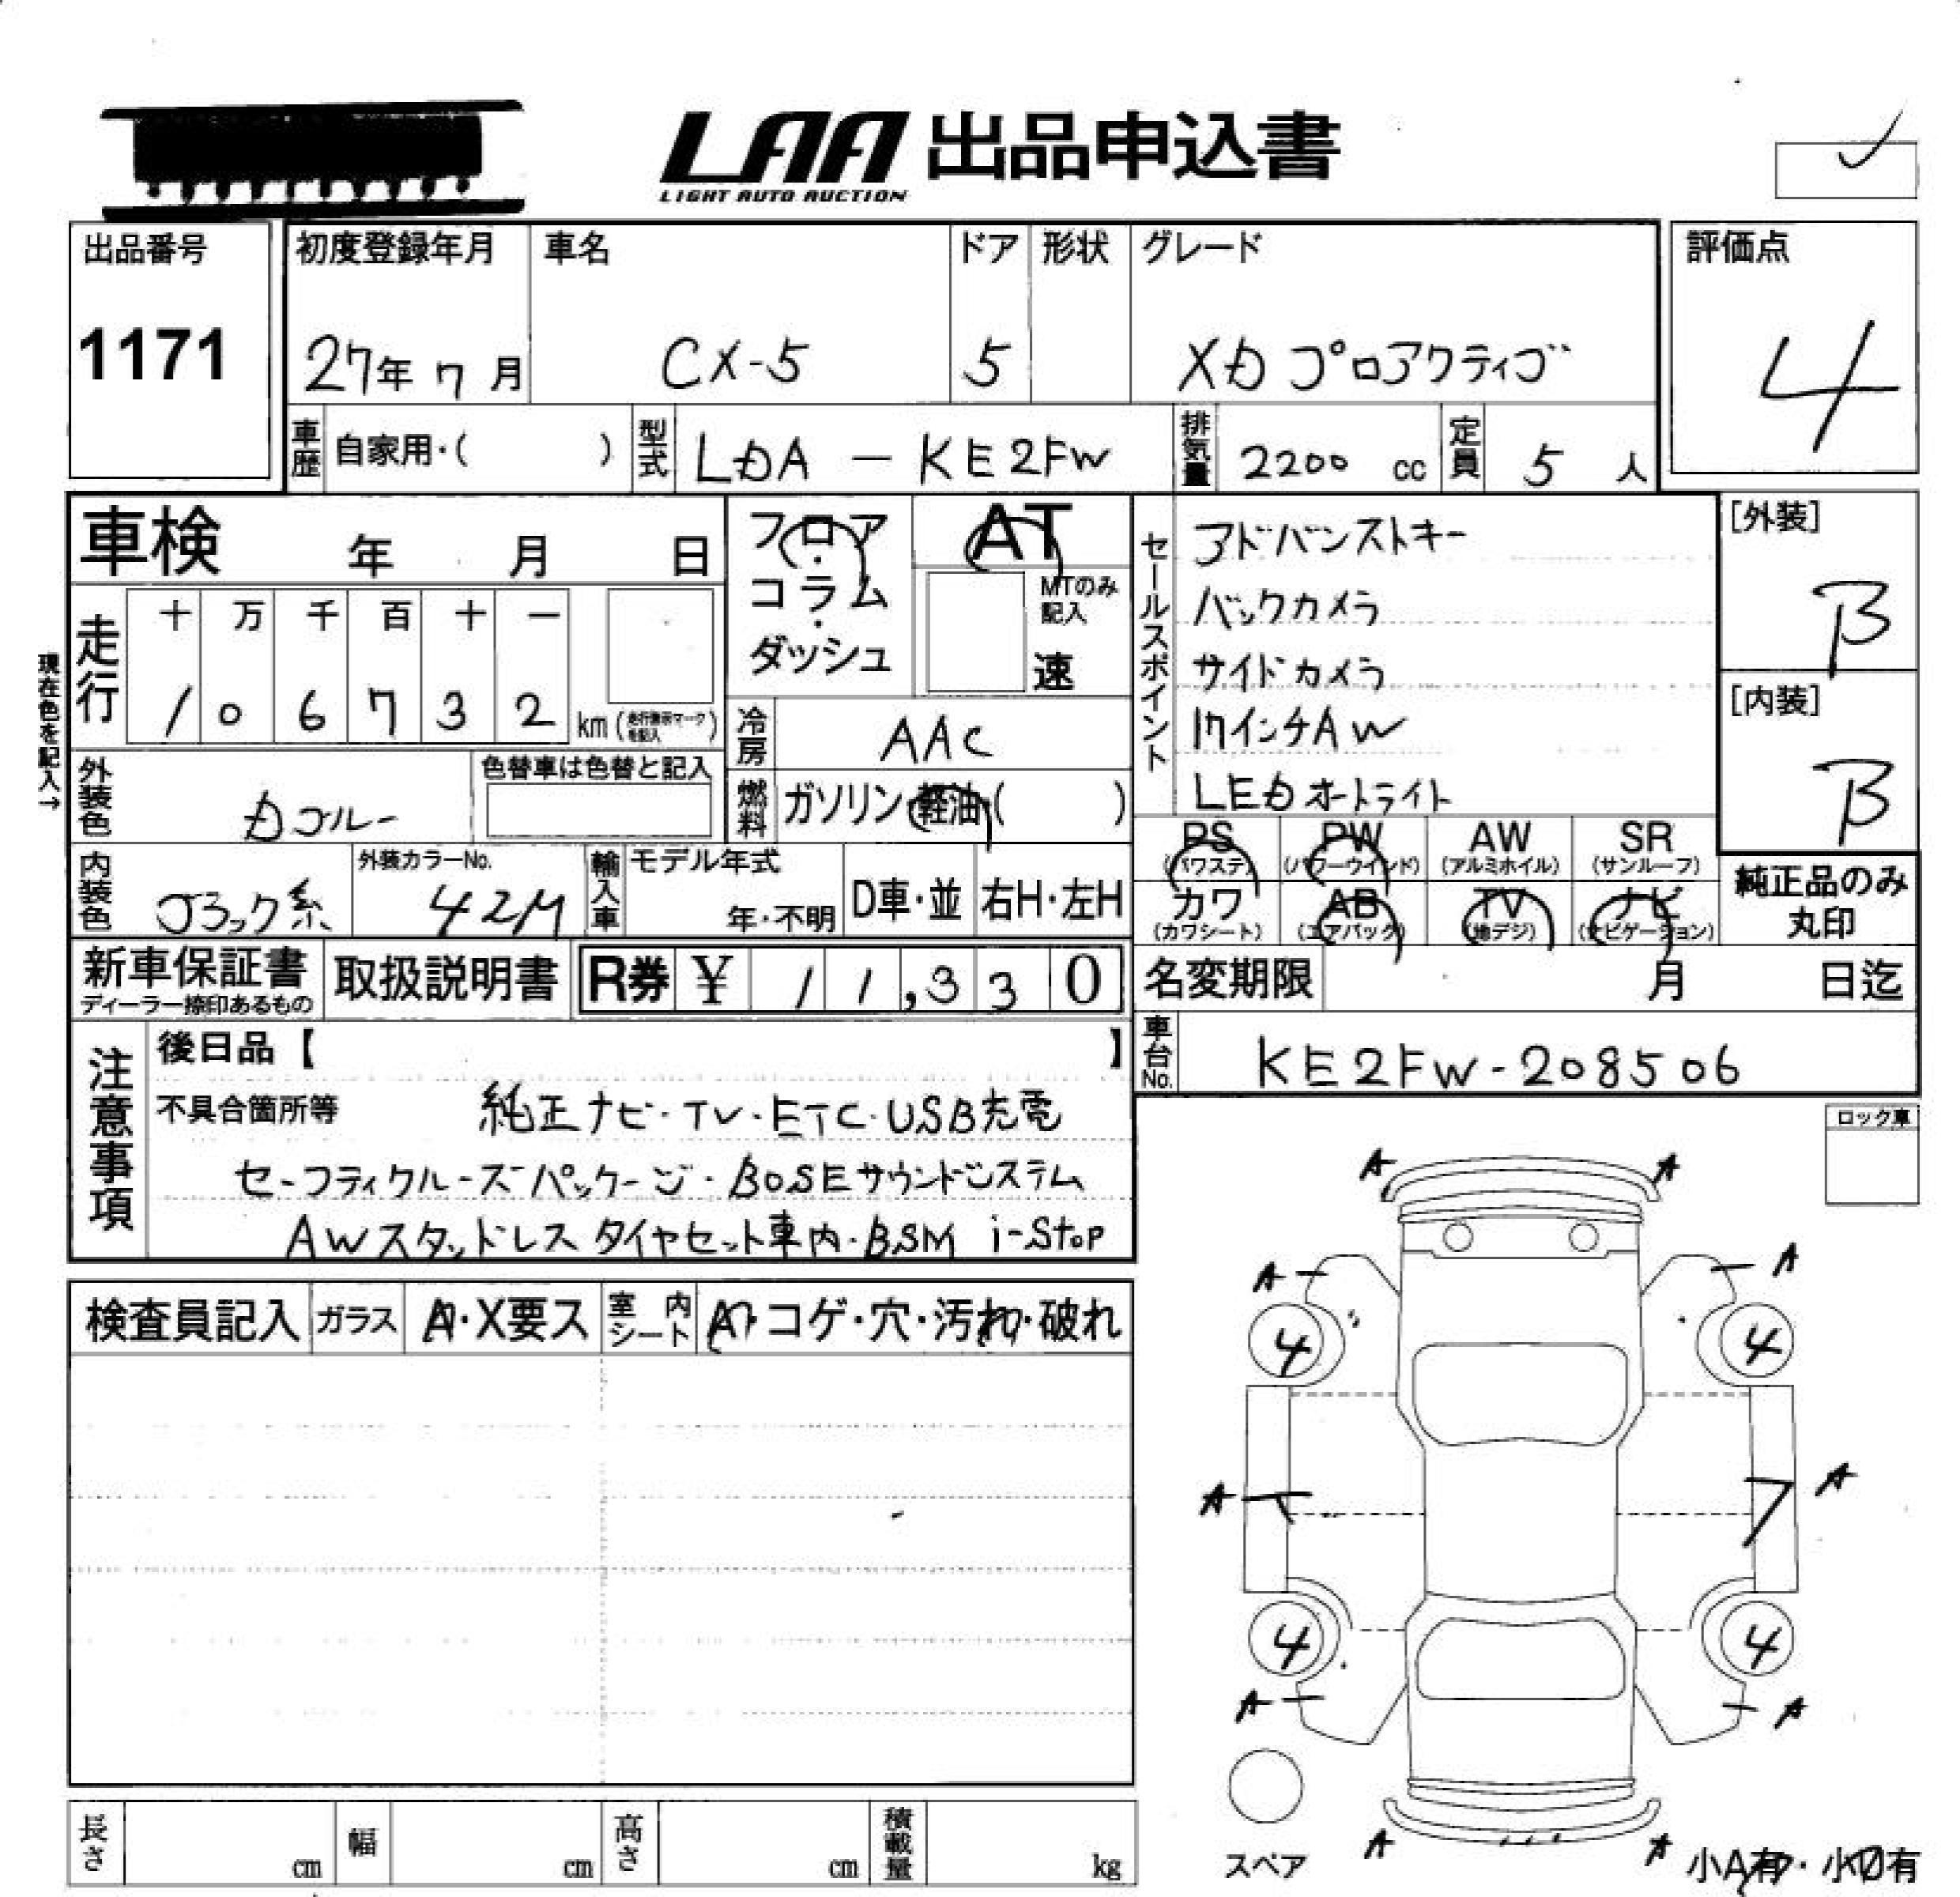 LAA 出品申込書
LIGHT AUTO AUCTION
出品番号 初度登録年月 車名 ドア 形状 グレード 評価点
1171 27年 7月 CX-5 5 XD プロアクティブ 4
車歴 自家用・( ) 型式 LDA - KE2FW 排気量 2200 cc 定員 5 人
車検 年 月 日
フロア・コラム・ダッシュ
AT
MTのみ記入
速
セールスポイント
アドバンストキー
バックカメラ
サイドカメラ
17インチAW
LEDオートライト
[外装]
B
[内装]
B
現在色を記入→
走行 十 万 千 百 十 一
1 0 6 7 3 2 km (走行表示マークを記入)
冷房 AAC
外装色 Dブルー 色替車は色替と記入
燃料 ガソリン・軽油・( )
PS PW AW SR
(パワステ) (パワーウインド) (アルミホイル) (サンルーフ)
カワ AB TV ナビ
(カワシート) (エアバック) (地デジ) (ナビゲーション)
純正品のみ
丸印
内装色 ブラック系 外装カラーNo. 42M 輸入車 モデル年式 年・不明 D車・並 右H・左H
新車保証書 取扱説明書 R券 ¥ 11,330
ディーラー捺印あるもの
名変期限 月 日迄
車台No. KE2FW-208506
注意事項
後日品【 】
不具合箇所等 純正ナビ・TV・ETC・USB充電
セーフティクルーズパッケージ・BOSEサウンドシステム
AWスタッドレスタイヤセット車内・BSM i-Stop
ロック車
A A
A A
4 4
A A
4 4
A A
A A
検査員記入 ガラス A・X要ス 室内シート A・コゲ・穴・汚れ・破れ
スペア
小A有・小凹有
長さ cm 幅 cm 高さ cm 積載量 kg